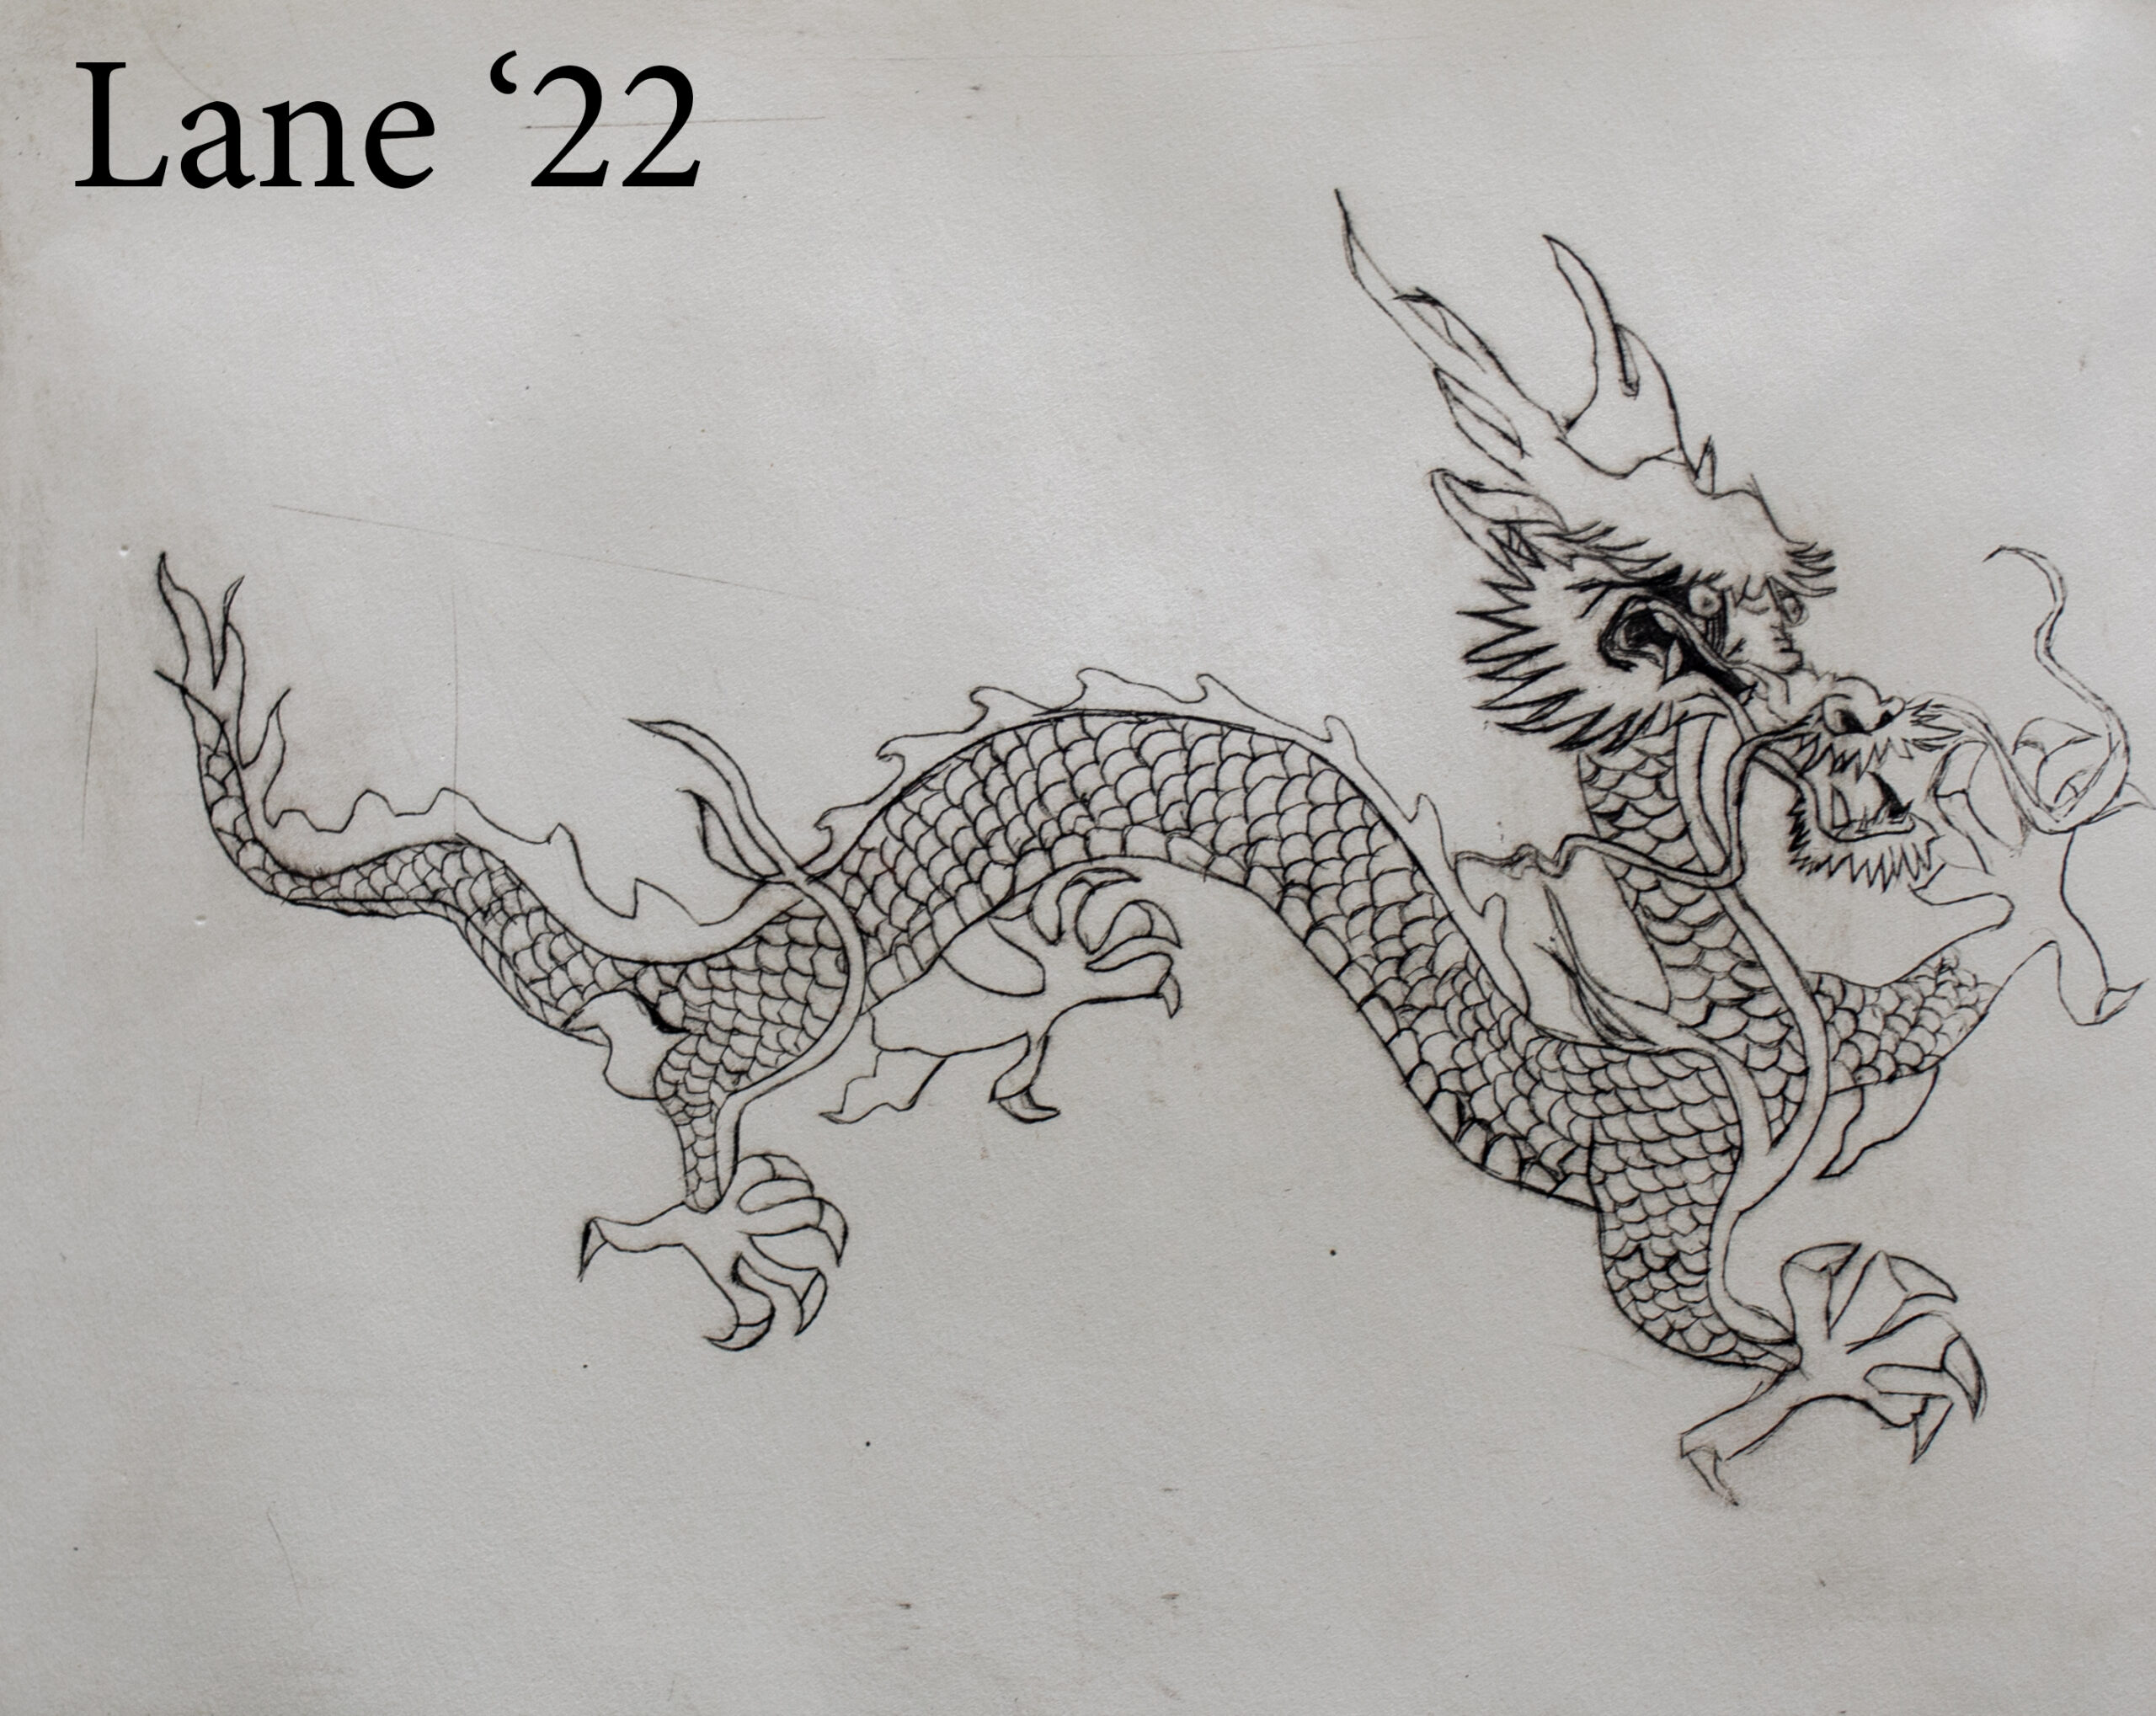 Lane ‘22